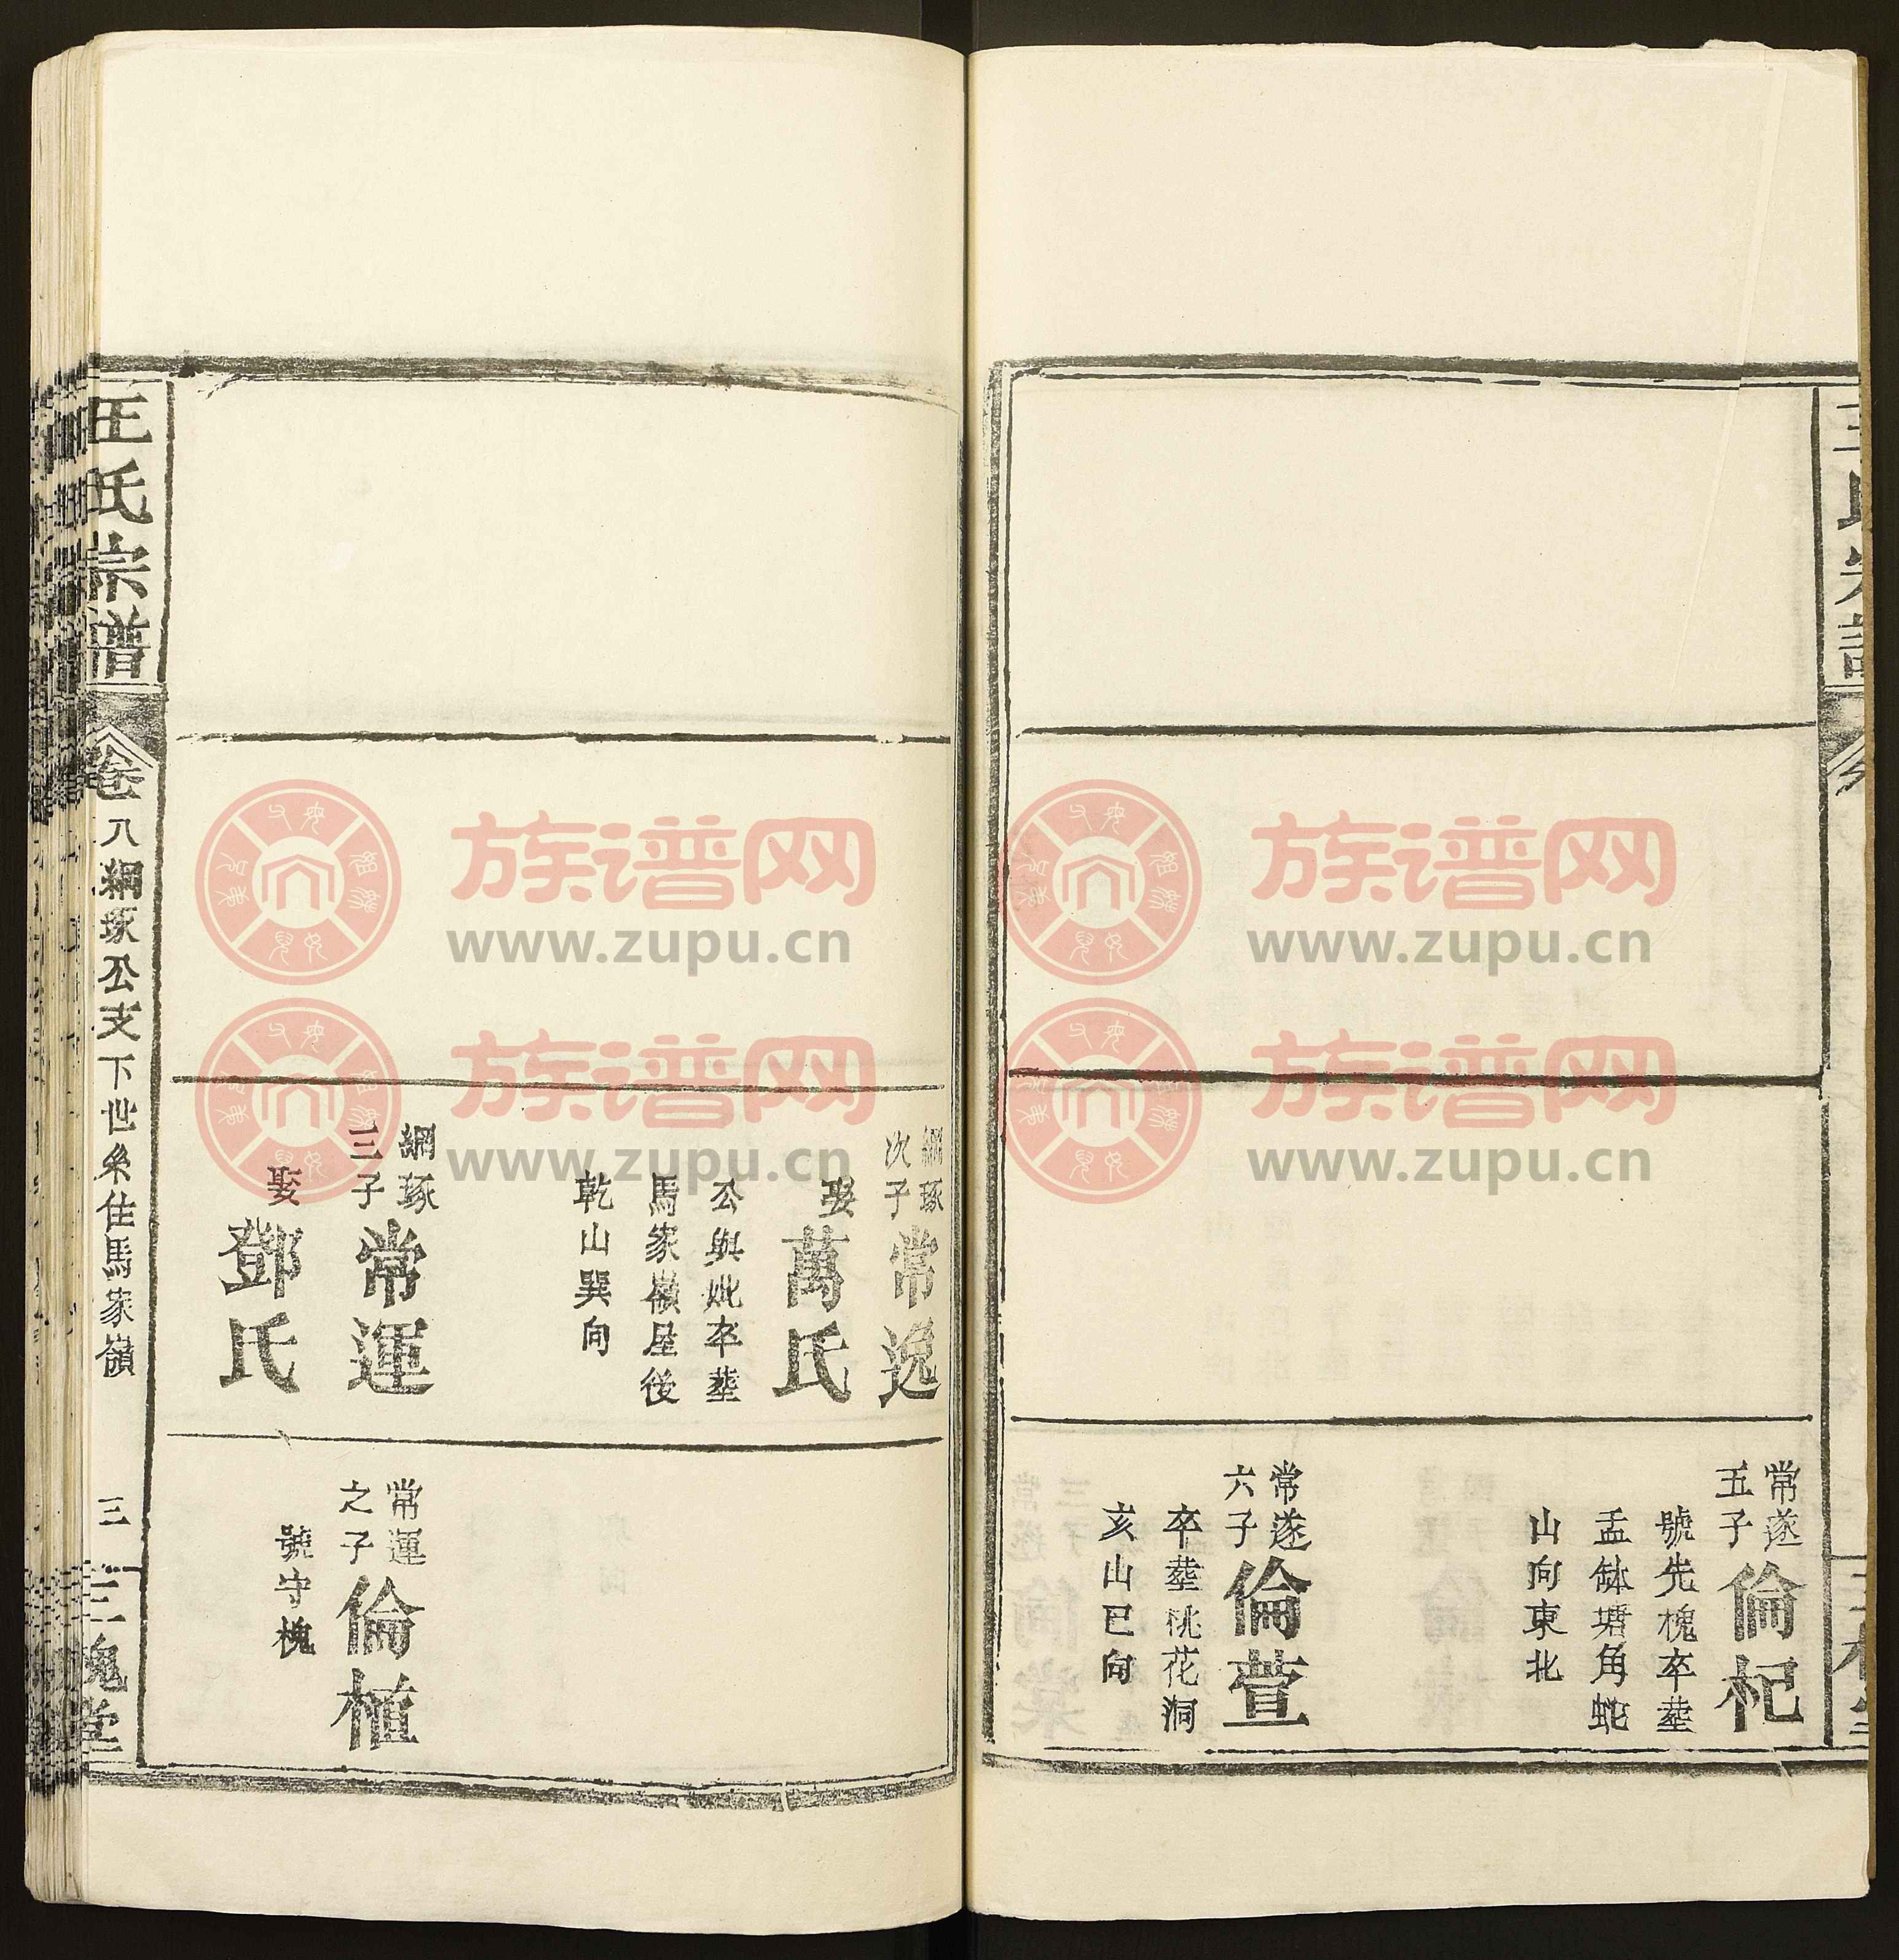 常遂
五子
倫杞
號先槐卒塟
盂缽塘角蛇
山向東北
常遂
六子
倫萱
卒塟桃花洞
亥山巳向
綱琢
次子
常逸
娶
萬氏
公與妣卒塟
馬家嶺屋後
乾山巽向
綱琢
三子
常運
娶
鄧氏
常運
之子
倫植
號守槐
王氏宗譜
卷八綱琢公支下世系住馬家嶺
三
三槐堂
族谱网
www.zupu.cn
族谱网
www.zupu.cn
族谱网
www.zupu.cn
族谱网
www.zupu.cn